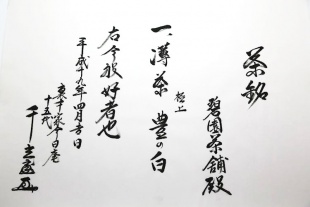 茶銘
碧園茶舗殿
極上
一、薄茶 豊の白
右今般好者也
平成十九年四月吉日
裏千家今日庵
十五代
千玄室